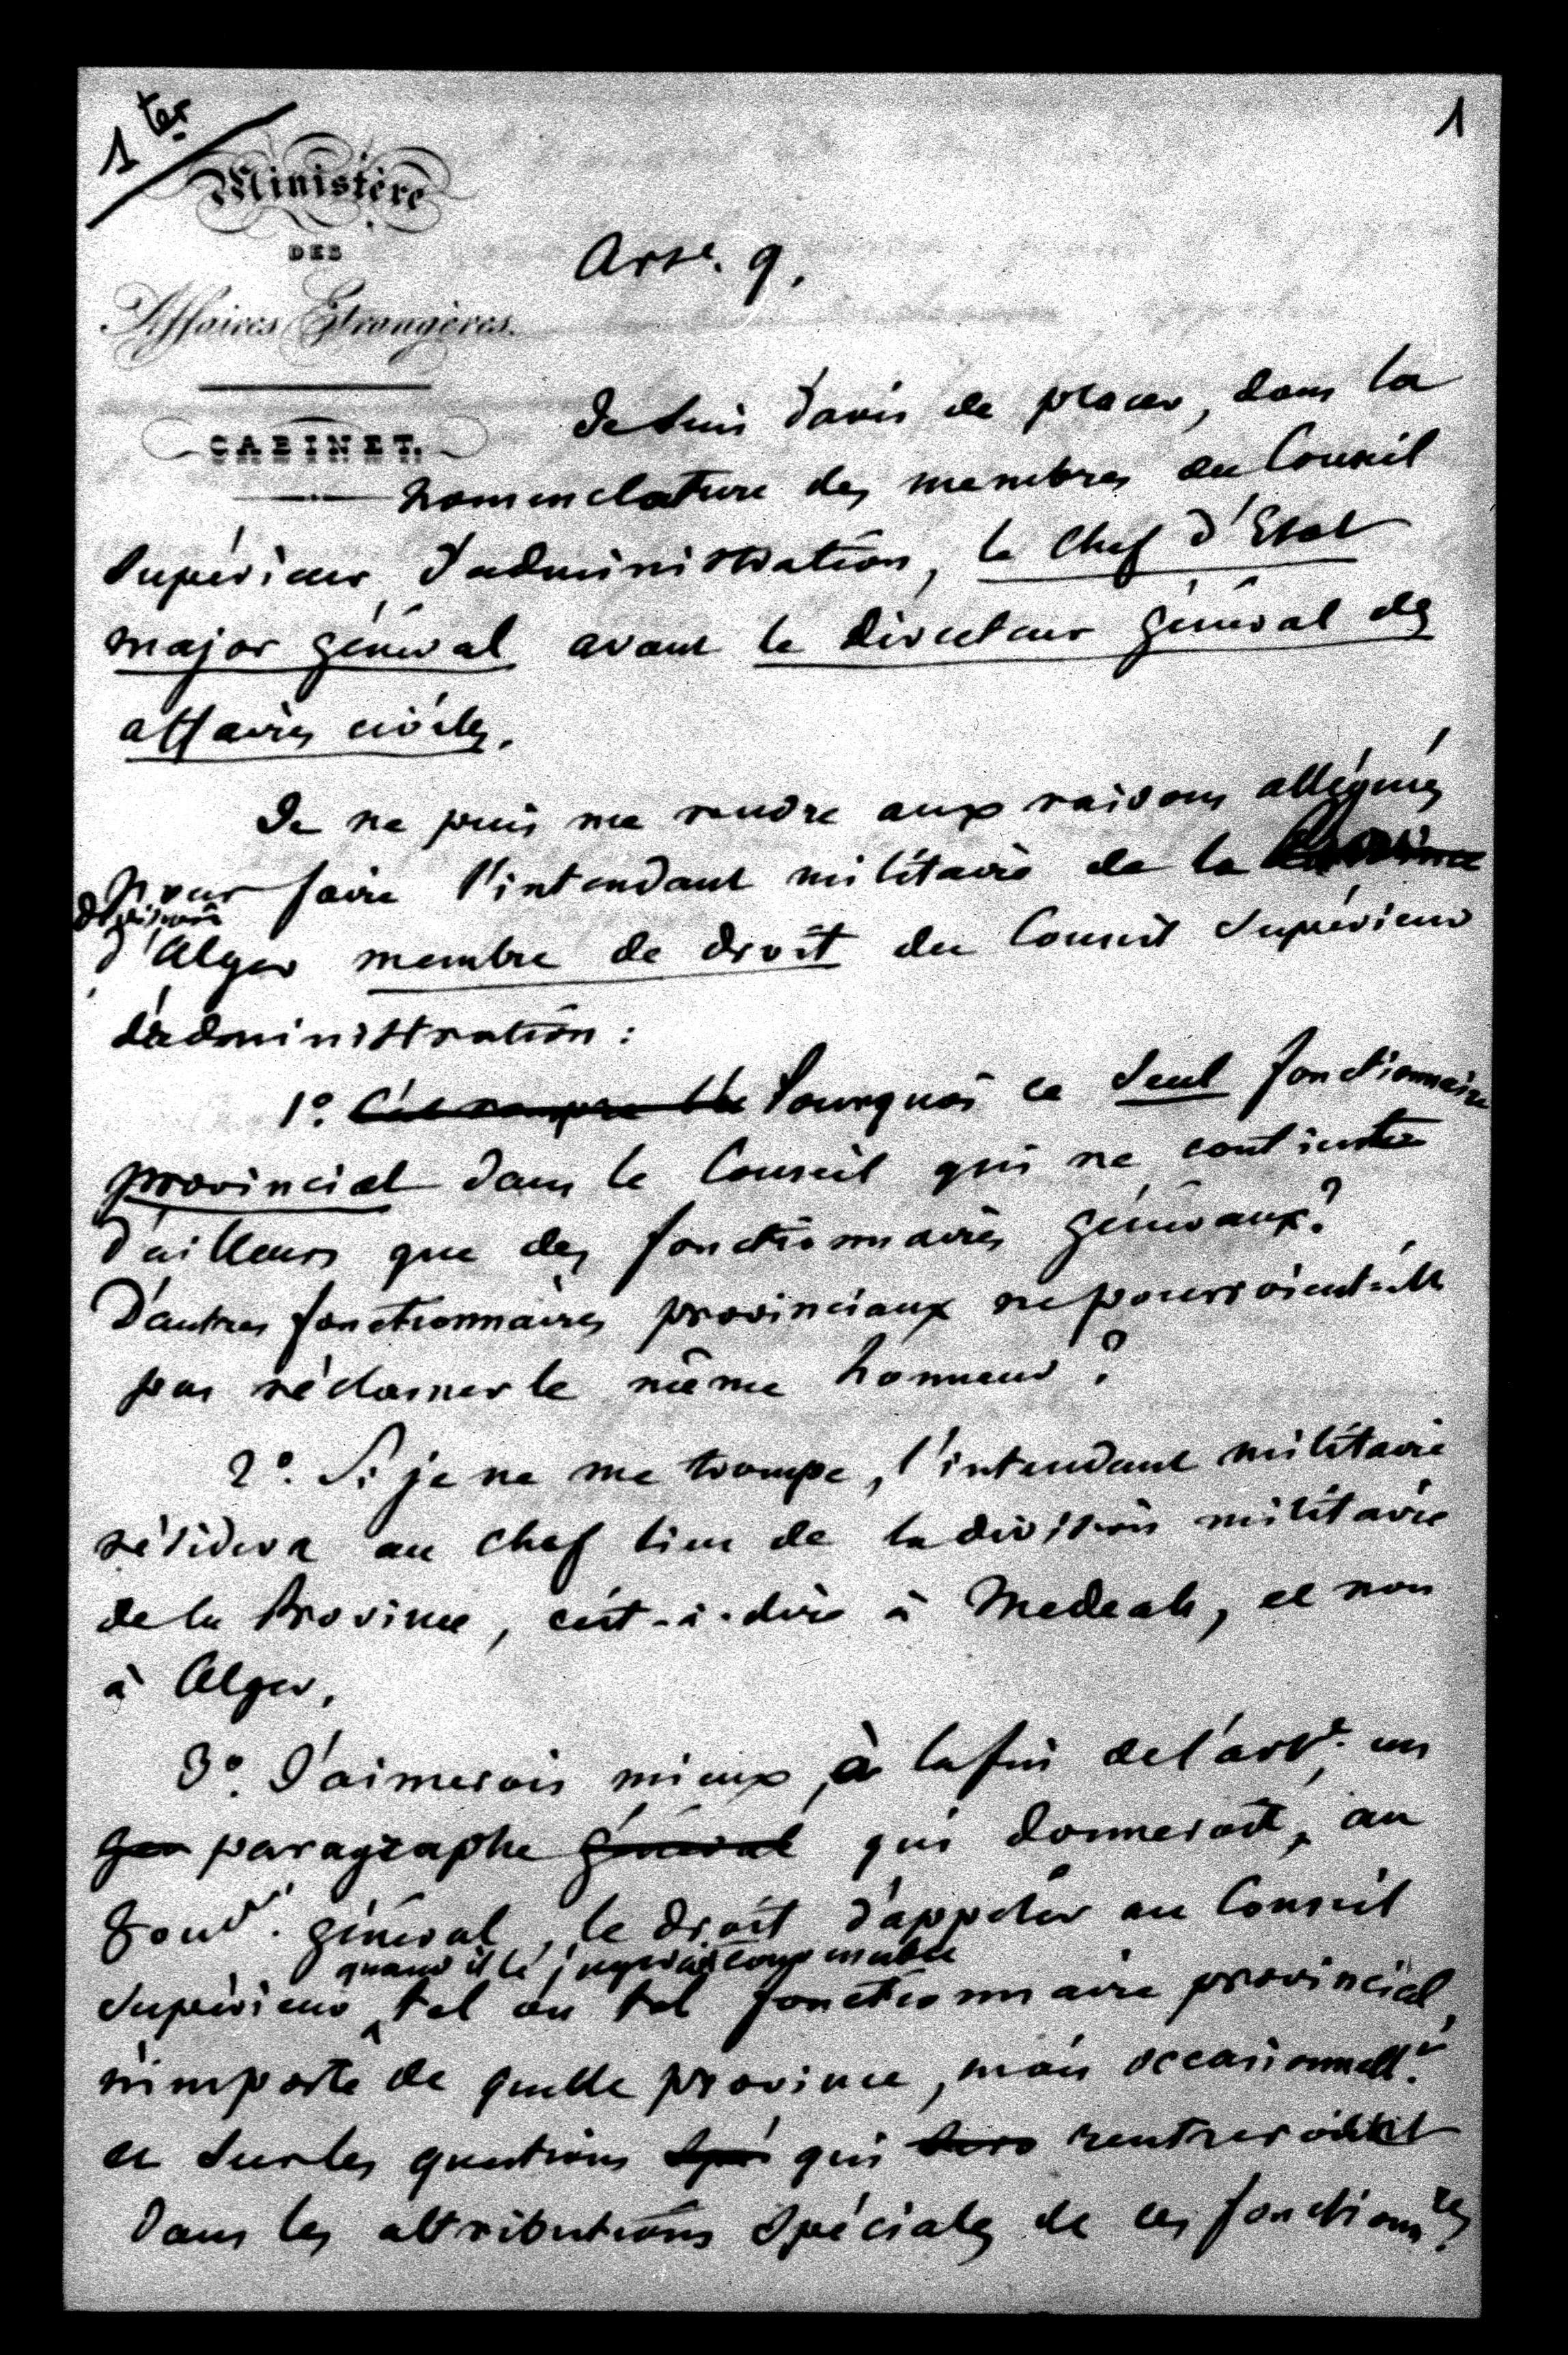 1 ter
1
Ministère
DES
Affaires Etrangères.
CABINET.
Art. 9.
Je suis d'avis de placer, dans la
nomenclature des membres du Conseil
Supérieur d'administration, le Chef d'Etat
major général avant le directeur général des
affaires civiles.
Je ne puis me rendre aux raisons alléguées
pour faire l'intendant militaire de la province
division
d'Alger membre de droit du Conseil Supérieur
d'administration :
1º. Pourquoi ce seul fonctionnaire
provincial dans le Conseil qui ne contient
d'ailleurs que des fonctionnaires généraux ?
D'autres fonctionnaires provinciaux ne pourroient-ils
pas réclamer le même honneur ?
2º. Si je ne me trompe, l'intendant militaire
résidera au chef lieu de la division militaire
de la Province, c'est-à-dire à Medeah, et non
à Alger.
3º. J'aimerois mieux, à la fin de l'art. un
paragraphe général qui donneroit, au
Gouvr. général, le droit d'appeler au Conseil
quand il le jugeroit convenable
Supérieur tel ou tel fonctionnaire provincial,
n'importe de quelle province, mais occasionnellt.
et sur les questions qui rentreroient
dans les attributions spéciales de ces fonctionnres.